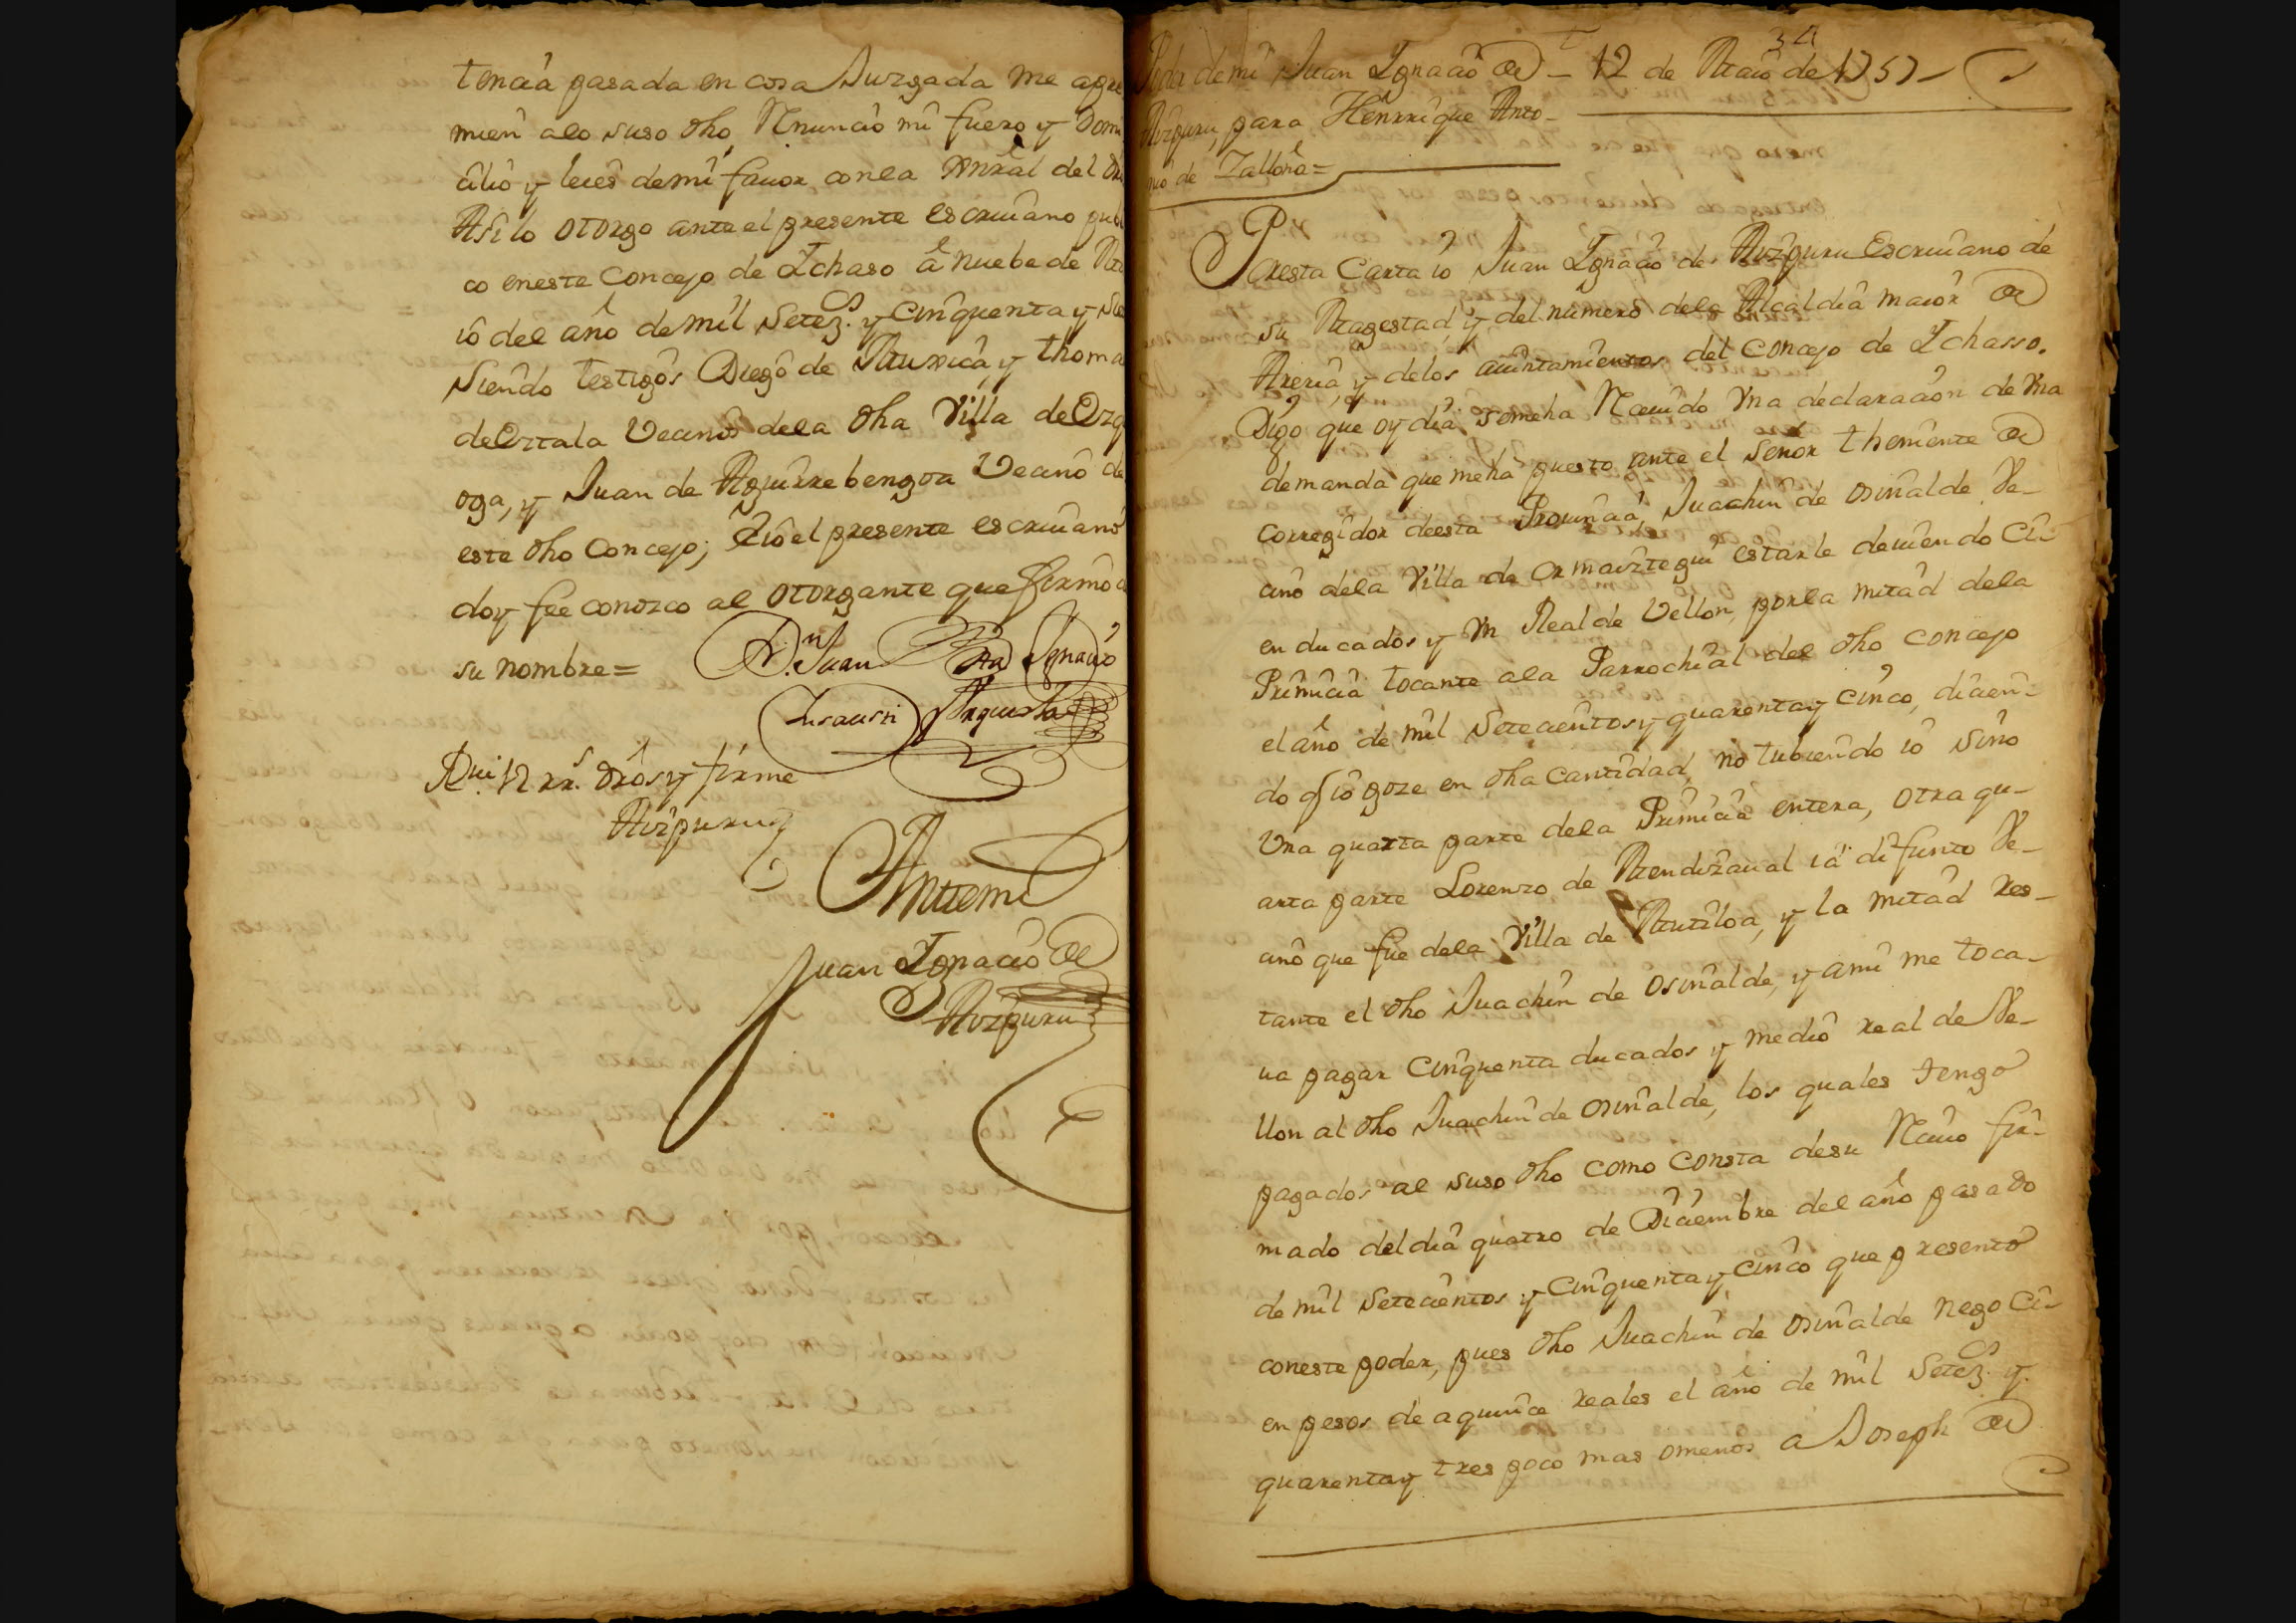 tencia pasada en cosa Juzgada me apre
mien alo suso dho, Renuncio mi fuero y Domi
cilio y leies de mi fauor con la Genral del
Asi lo otorgo ante el presente escriuano publi
co en este Concejo de Ichaso á nuebe de Ma
io del año de mil setez.s y cinquenta y sie
siendo testigos Diego de Muxica, y thoma
de Urtala Vecinos dela dha Villa de Orq
oga, y Juan de Aguirrebengoa Vecino de
este dho Concejo; Eio el presente escriuano
doy fee conozco al otorgante que firmó
su nombre =
D.n Juan Bta Ignacio
Insausti Arquista
Rui. 12 rr.s dros y firme
Aizpuru
Antemi
Juan Ignacio de
Aizpuru
34
Poder de mi Juan Ignacio de - 12 de Maio de 1757 -
Aizpuru, para Henrrique Anto-
nio de Lalloña =
Por esta Carta io Juan Ignacio de Aizpuru Escriuano de
su Magestad, y del numero dela Alcaldia maior de
Areria, y delos aiuntamientos del Concejo de Ichasso.
Digo que oy dia seme ha Receuido Vna declaracion de Vna
demanda que me há puesto ante el señor theniente de
corregidor de esta Prouincia, Juachin de osinalde Ve-
cino dela Villa de Ormaiztegui estarle deuiendo Ci-
en ducados y Vn Real de Vellon, por la mitad dela
Primicia tocante ala Parrochial del dho concejo
el año de mil setecientos y quarenta y cinco, dicien-
do q io goze en dha cantidad, no tubiendo io sino
Vna quarta parte dela Primicia entera, otra qu-
arta parte Lorenzo de Mendizaual iá difunto Ve-
cino que fue dela Villa de Mutiloa, y la mitad res-
tante el dho Juachin de osinalde, y ami me toca-
ua pagar Cinquenta ducados y medio real de Ve-
llon al dho Juachin de osinalde, los quales tengo
pagados al suso dho como consta de su Reciuo fir-
mado del dia quatro de Diciembre del año pasado
de mil setecientos y Cinquenta y cinco que presento
con este poder, pues dho Juachin de osinalde nego Ci-
en pesos de a quince reales el año de mil Setez.s y
quarenta y tres poco mas omenos a Joseph de